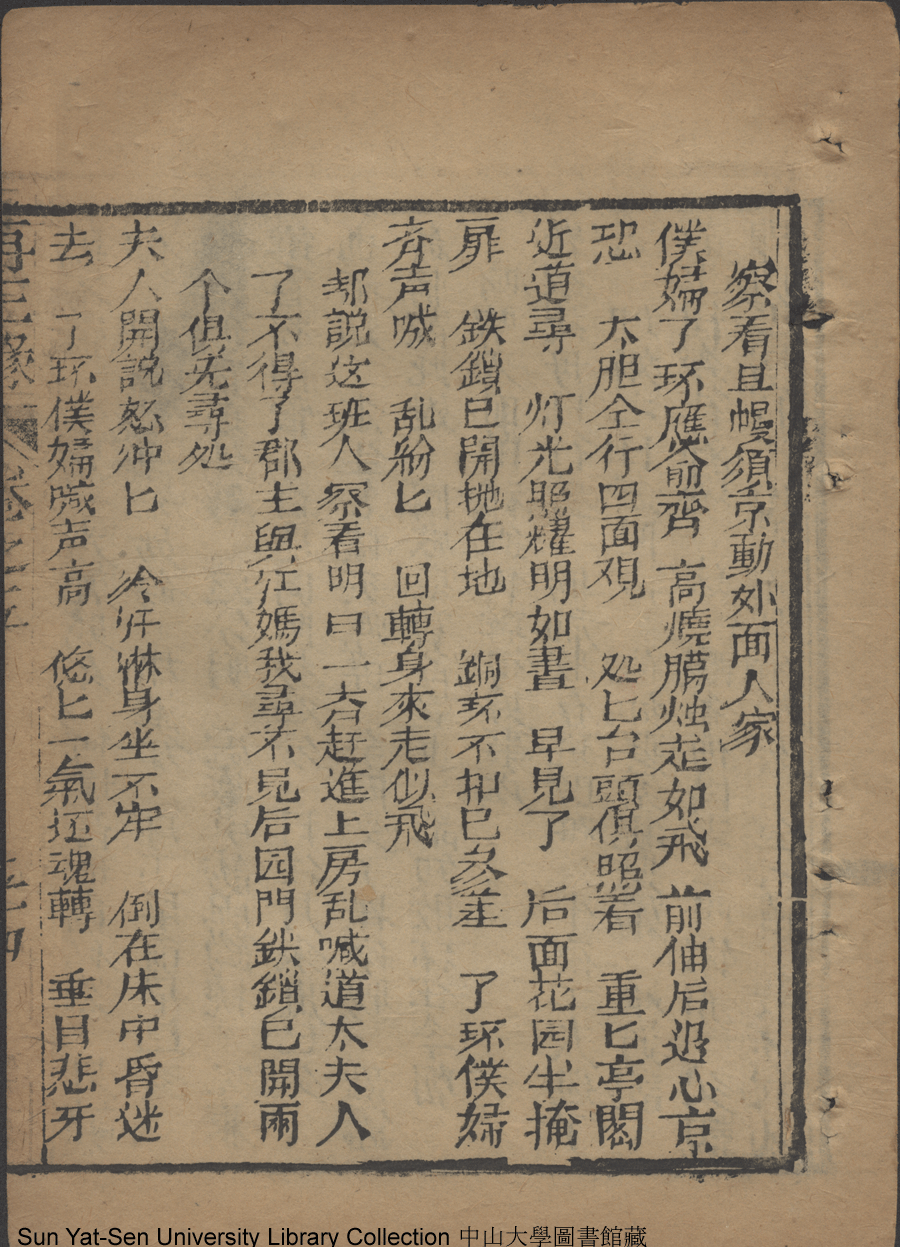 察看且慢須京動外面人家
僕婦了环應俞齊 高燒臈烛走如飛 前伷后追心京
恐 大胆仝行四面观 処匕台頭俱照着 重匕亭閣
近道尋 灯光照耀明如晝 早見了 后面花园半掩
扉 鉄鎖已開抛在地 銅环不扣已參差 了环僕婦
斉声喊 乱紛匕 回轉身來走似飛
却説这班人察看明白一夻赶進上房乱喊道太夫人
了不得了郡主與江媽我尋不見后园門鉄鎖已開兩
个俱无尋処
夫人開説怒冲匕 冷汗淋身坐不牢 倒在床中昏迷
去 了环僕婦喊声高 悠匕一氣还魂轉 垂目悲牙
再生緣 卷之五 二十四
Sun Yat-Sen University Library Collection 中山大學圖書館藏